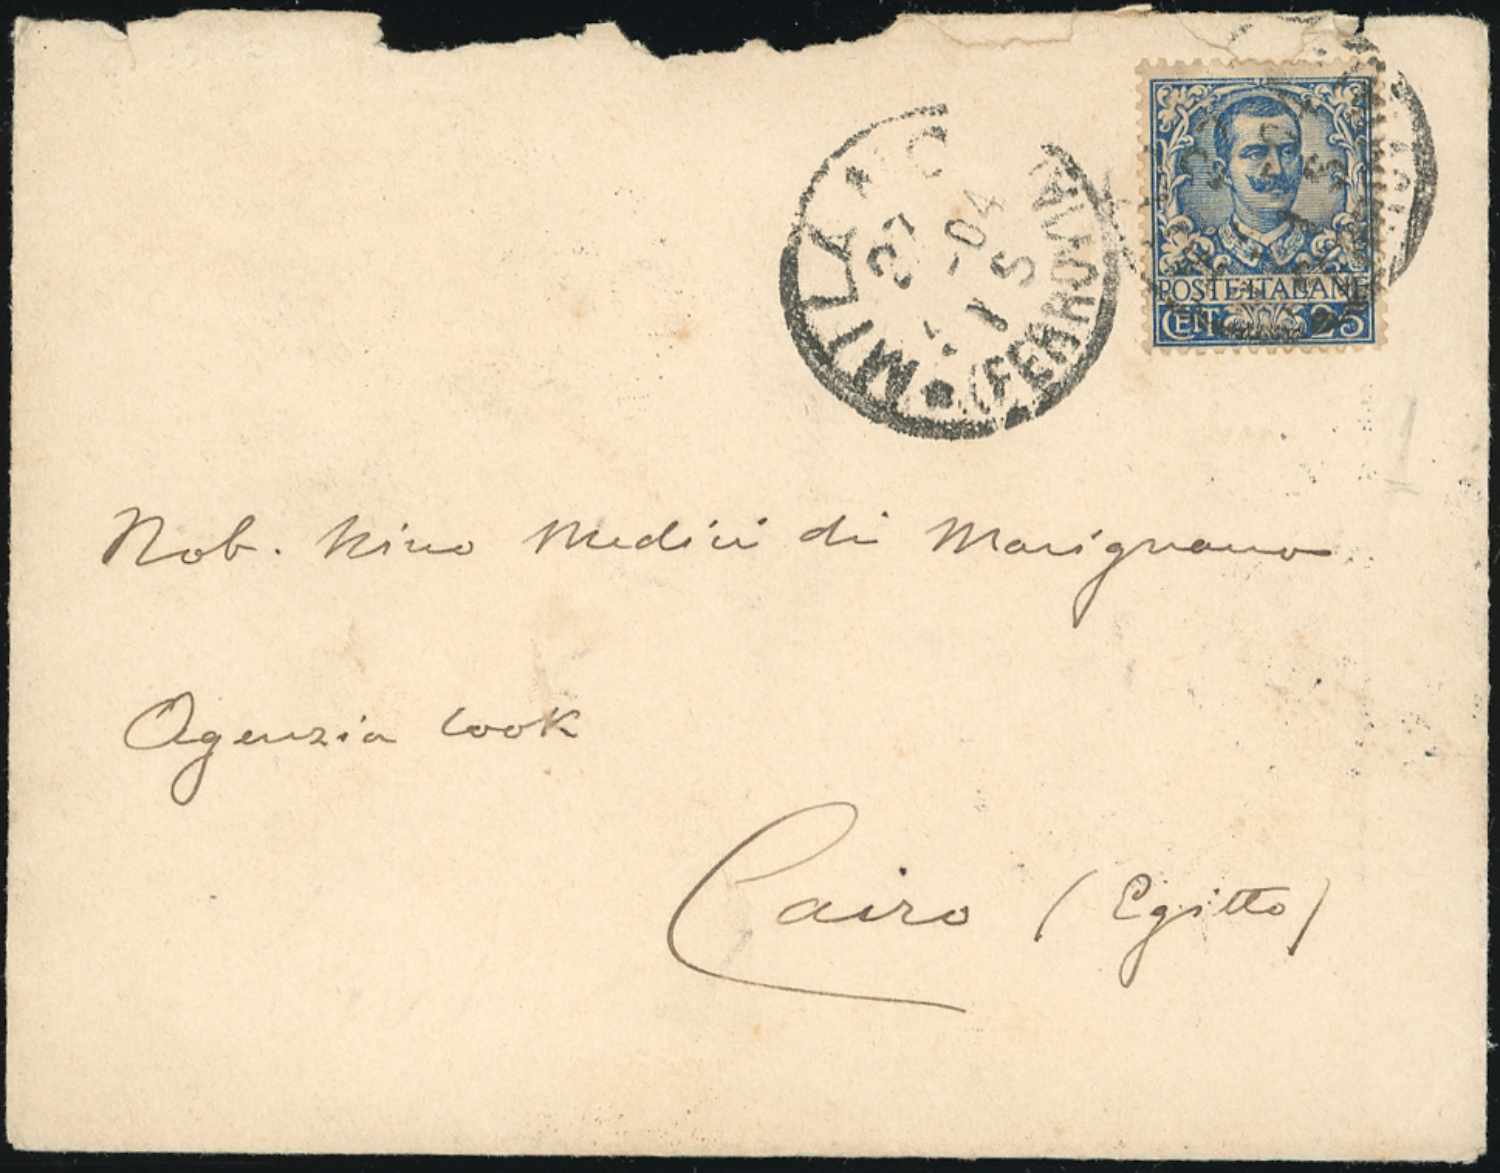 MILANO (FERROVIA)
27 -04
1 S
POSTE·ITALIANE
CENT. 25
Nob. Nino Medici di Marignano
Agenzia Cook
Cairo (Egitto)